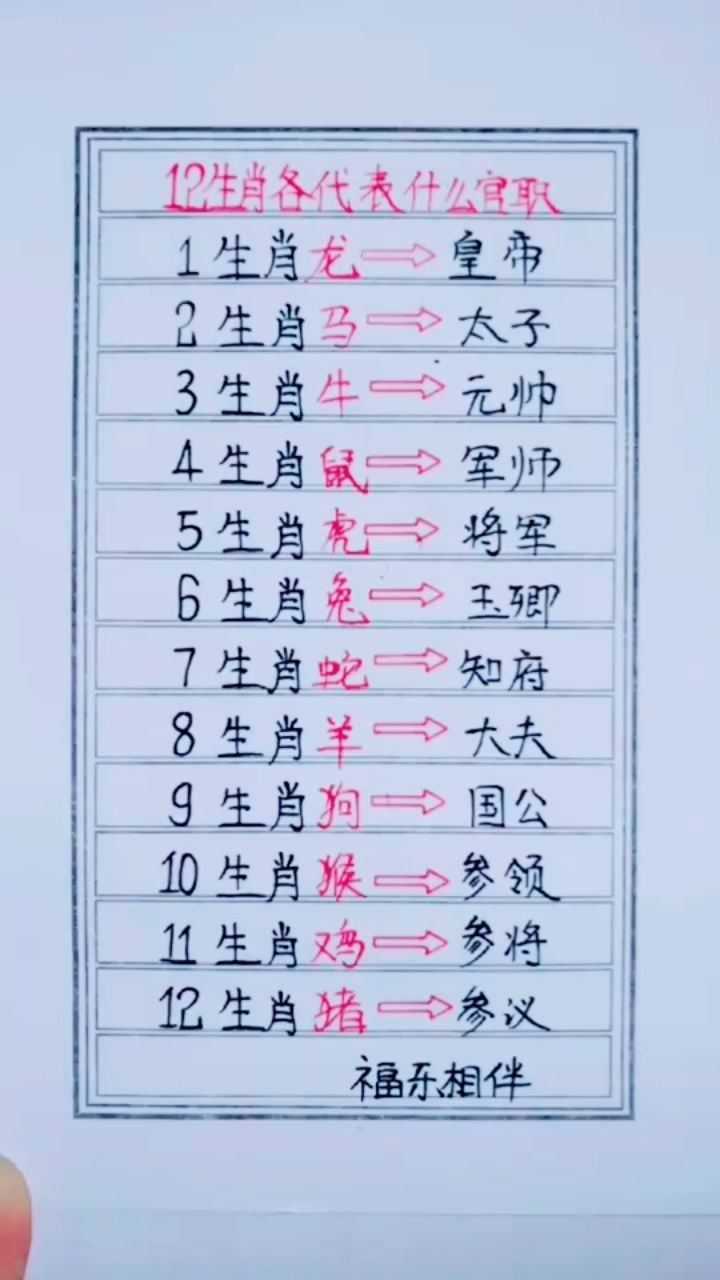 12生肖各代表什么官职
1生肖龙⇨皇帝
2生肖马⇨太子
3生肖牛⇨元帅
4生肖鼠⇨军师
5生肖虎⇨将军
6生肖兔⇨玉卿
7生肖蛇⇨知府
8生肖羊⇨大夫
9生肖狗⇨国公
10生肖猴⇨参领
11生肖鸡⇨参将
12生肖猪⇨参议
福乐相伴